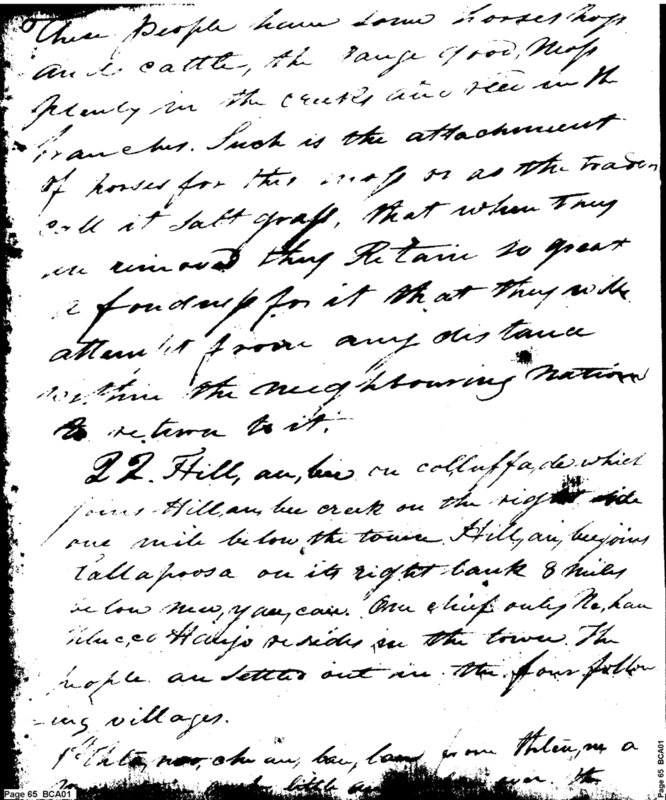 These People have some horses hogs
and cattle, the range good, Moss
plenty in the creeks and reed in the
branches. Such is the attachment
of horses for this moss or as the traders
call it salt grass, that when they
are removed they Retain so great
a fondness for it that they will
attempt from any distance
within the neighbouring nations
to return to it.
22. Hill,au,bee on col,luffa,de which
joins Hill,au,bee creek on the right side
one mile below the town. Hill,au,bee joins
Tallapoosa on its right bank 8 miles
below new,yau,cau. One chief only Ne,hau
thluc,co Haujo resides in the town. The
people are settled out in the four follow
-ing villages.
1st thla,noo,che au,bau,lau from thlen,ne a
little
Page 65 BCA01
Page 65 BCA01